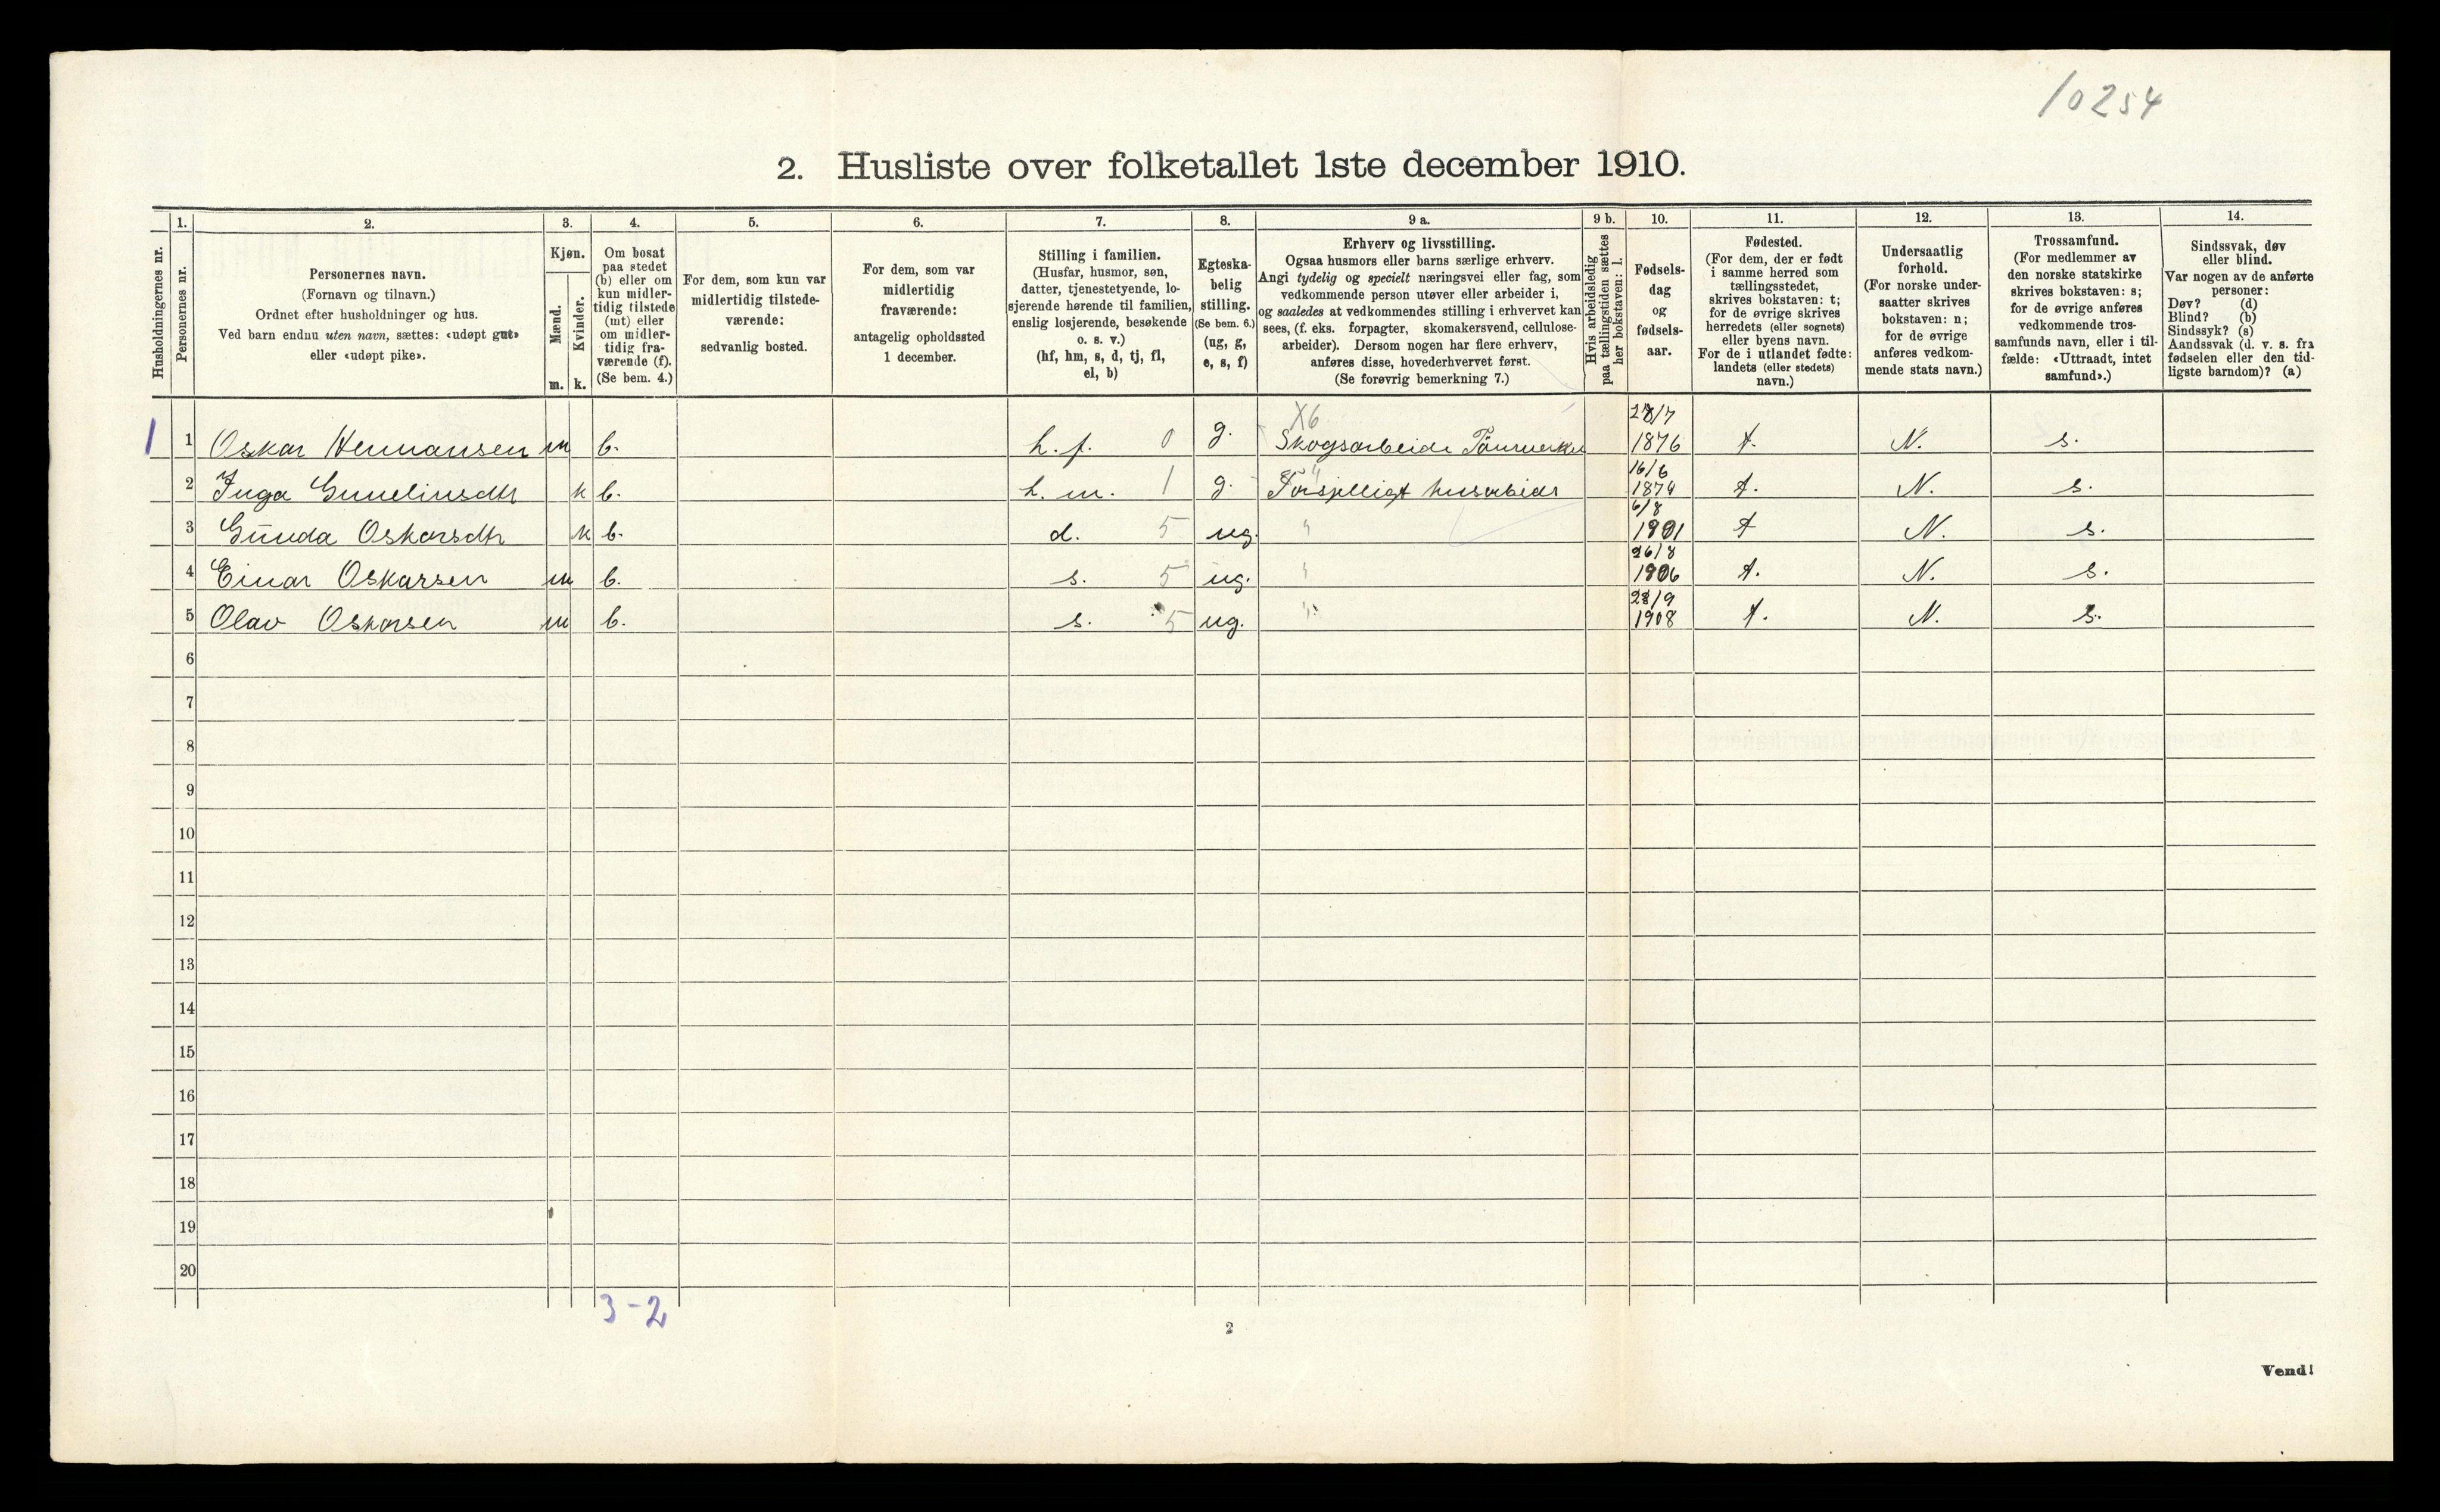 10254
2. Husliste over folketallet 1ste december 1910.
Husholdningernes nr.
1.
Personernes nr.
2.
Personernes navn.
(Fornavn og tilnavn.)
Ordnet efter husholdninger og hus.
Ved barn endnu uten navn, sættes: «udøpt gut»
eller «udøpt pike».
3.
Kjøn.
Mænd.
Kvinder.
m. k.
4.
Om bosat
paa stedet
(b) eller om
kun midler-
tidig tilstede
(mt) eller
om midler-
tidig fra-
værende (f).
(Se bem. 4.)
5.
For dem, som kun var
midlertidig tilstede-
værende:
sedvanlig bosted.
6.
For dem, som var
midlertidig
fraværende:
antagelig opholdssted
1 december.
7.
Stilling i familien.
(Husfar, husmor, søn,
datter, tjenestetyende, lo-
sjerende hørende til familien,
enslig losjerende, besøkende
o. s. v.)
(hf, hm, s, d, tj, fl,
el, b)
8.
Egteska-
belig
stilling.
(Se bem. 6.)
(ug, g,
e, s, f)
9 a.
Erhverv og livsstilling.
Ogsaa husmors eller barns særlige erhverv.
Angi tydelig og specielt næringsvei eller fag, som
vedkommende person utøver eller arbeider i,
og saaledes at vedkommendes stilling i erhvervet kan
sees, (f. eks. forpagter, skomakersvend, cellulose-
arbeider). Dersom nogen har flere erhverv,
anføres disse, hovederhvervet først.
(Se forøvrig bemerkning 7.)
9 b.
Hvis arbeidsledig
paa tællingstiden sættes
her bokstaven: l.
10.
Fødsels-
dag
og
fødsels-
aar.
11.
Fødested.
(For dem, der er født
i samme herred som
tællingsstedet,
skrives bokstaven: t;
for de øvrige skrives
herredets (eller sognets)
eller byens navn.
For de i utlandet fødte:
landets (eller stedets)
navn.)
12.
Undersaatlig
forhold.
(For norske under-
saatter skrives
bokstaven: n;
for de øvrige
anføres vedkom-
mende stats navn.)
13.
Trossamfund.
(For medlemmer av
den norske statskirke
skrives bokstaven: s;
for de øvrige anføres
vedkommende tros-
samfunds navn, eller i til-
fælde: «Uttraadt, intet
samfund».)
14.
Sindssvak, døv
eller blind.
Var nogen av de anførte
personer:
Døv? (d)
Blind? (b)
Sindssyk? (s)
Aandssvak (d. v. s. fra
fødselen eller den tid-
ligste barndom)? (a)
X6 /7
1 1 Oskar Hermansen m b. h. f. 0 g. Skogsarbeide 1876 t. N. s.
16/6
2 Inga k b. h. m. 1 g. 1874 t. N. s.
6/8
3 Gunda Oskarsdtr k b. d. 5 ug. " 1901 t N. s.
26/8
4 Einar Oskarsen m b. s. 5 ug. " 1906 t. N. s.
28/9
5 Olav Oskarsen m b. s. 5 ug. " 1908 t. N. s.
6
7
8
9
10
11
12
13
14
15
16
17
18
19
20
3-2
2
Vend!